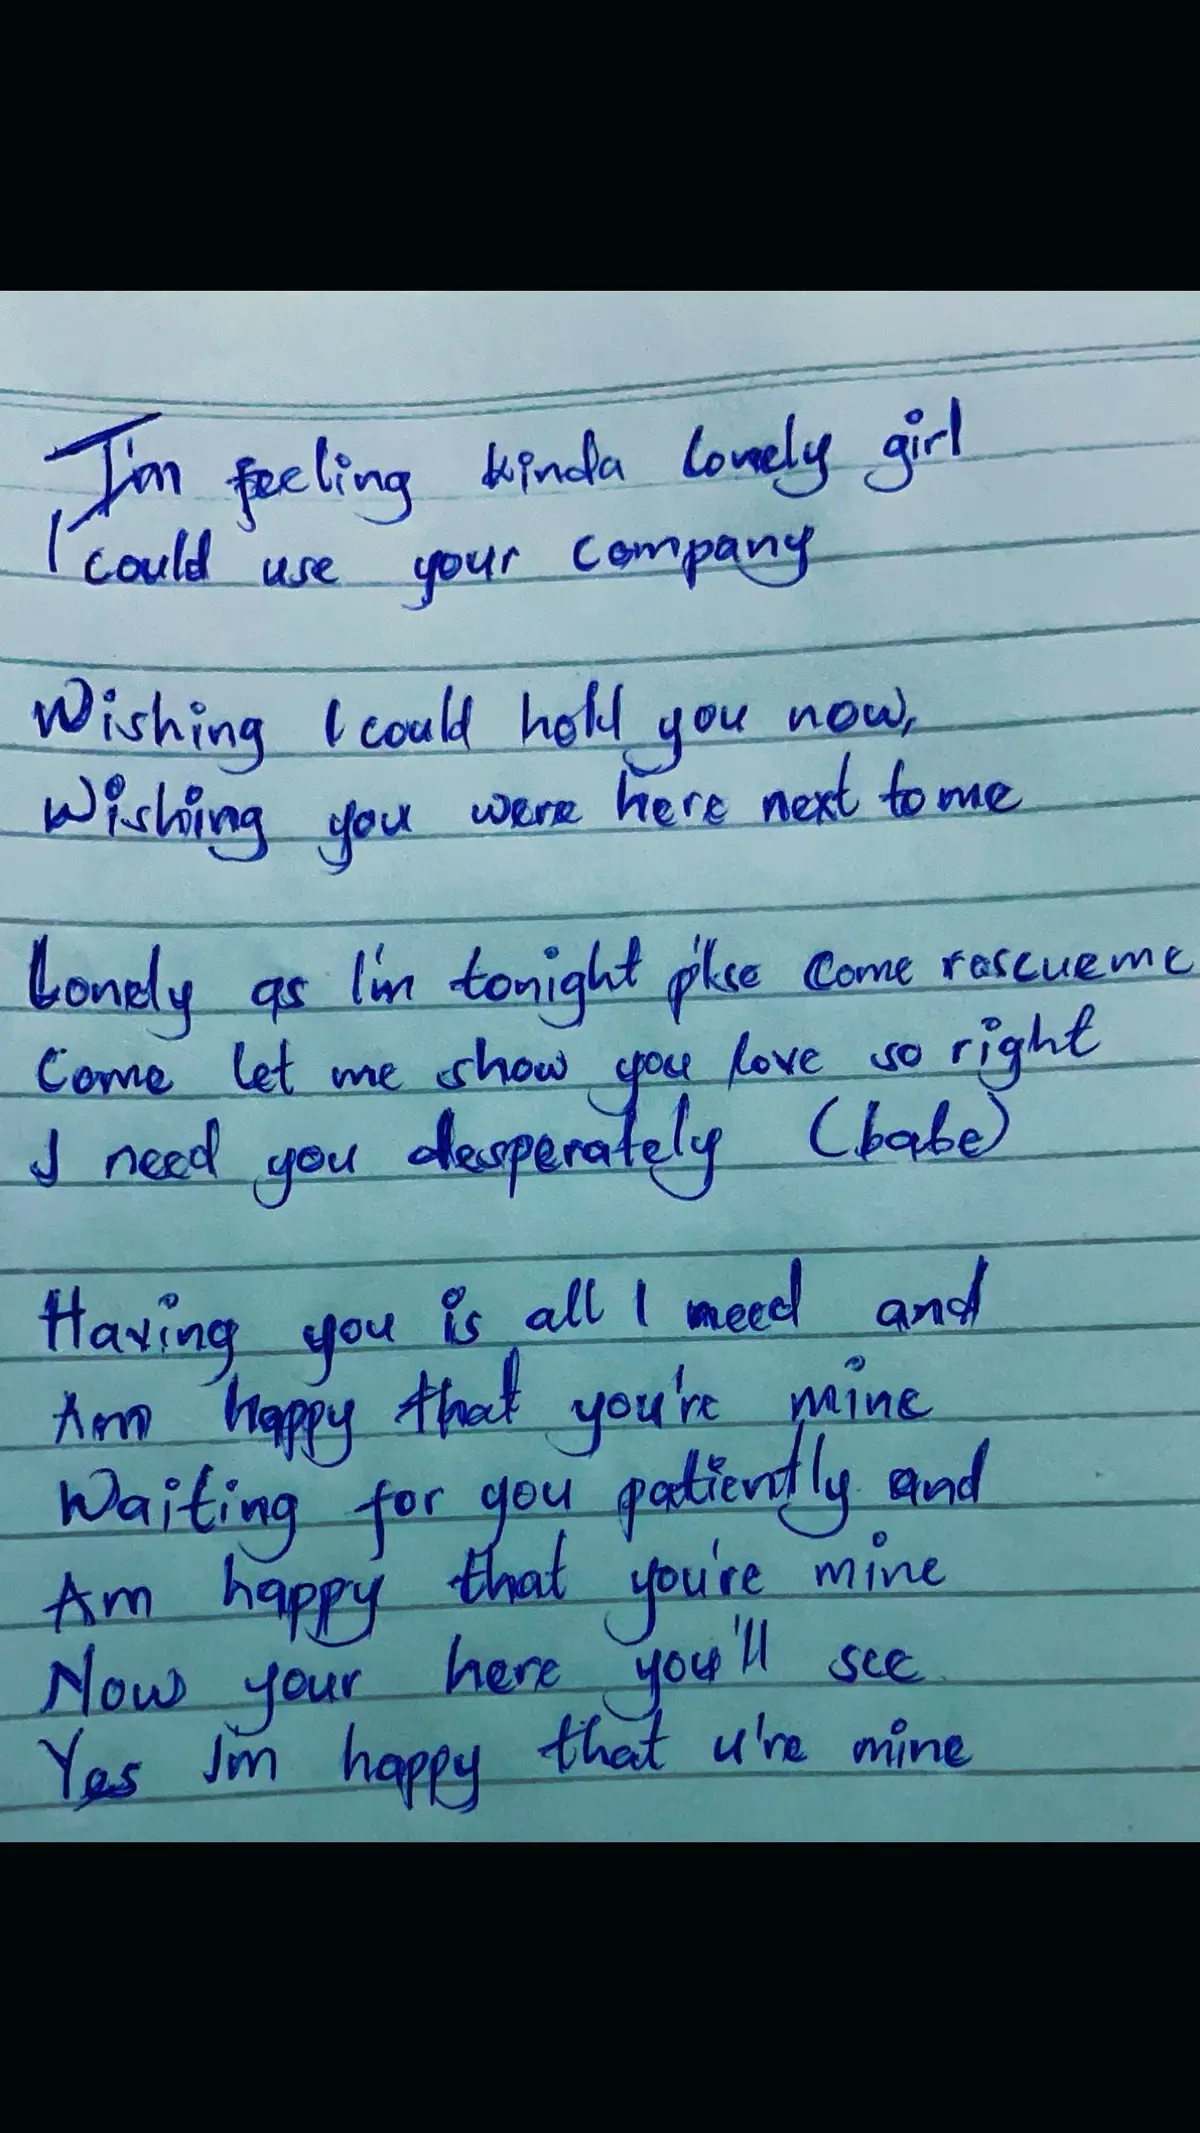 I'm feeling kinda lonely girl
I could use your company
Wishing I could hold you now,
Wishing you were here next to me
Lonely as I'm tonight p'lse come rescue me
Come let me show you love so right
I need you desperately (babe)
Having you is all I need and
Am happy that you're mine
Waiting for you patiently and
Am happy that you're mine
Now your here you'll see
Yes I'm happy that u're mine